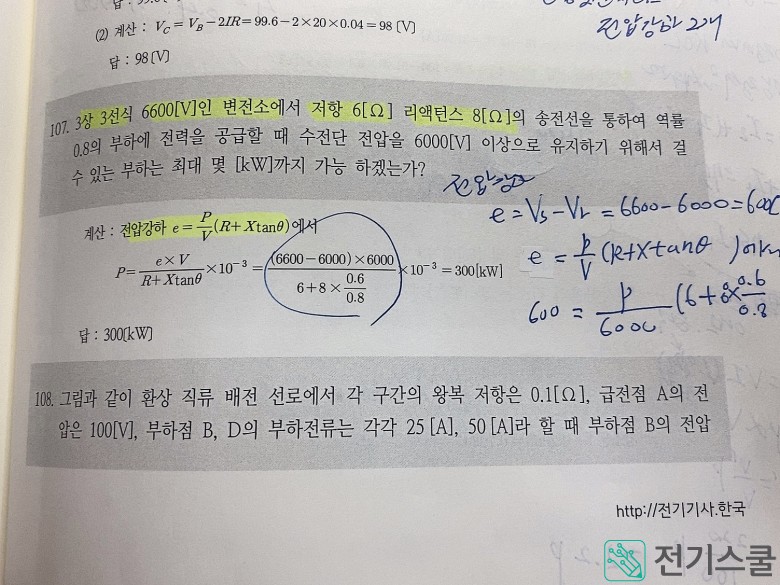 (2) 계산 : V_C = V_B − 2IR = 99.6 − 2 × 20 × 0.04 = 98 [V]
전압강하 2개
답 : 98[V]
107. 3상 3선식 6600[V]인 변전소에서 저항 6[Ω] 리액턴스 8[Ω]의 송전선을 통하여 역률
0.8의 부하에 전력을 공급할 때 수전단 전압을 6000[V] 이상으로 유지하기 위해서 걸
수 있는 부하는 최대 몇 [kW]까지 가능 하겠는가?
전압강하
e = Vs − Vr = 6600 − 6000 = 600
계산 : 전압강하 e = P/V (R + X tanθ)에서
e = P/V (R+X tanθ) 에서
P = (e × V)/(R + X tanθ) × 10⁻³ = ((6600 − 6000) × 6000)/(6 + 8 × 0.6/0.8) × 10⁻³ = 300[kW]
600 = P/6000 (6 + 8 × 0.6/0.8
답 : 300[kW]
108. 그림과 같이 환상 직류 배전 선로에서 각 구간의 왕복 저항은 0.1[Ω], 급전점 A의 전
압은 100[V], 부하점 B, D의 부하전류는 각각 25 [A], 50 [A]라 할 때 부하점 B의 전압
http://전기기사.한국
전기스쿨